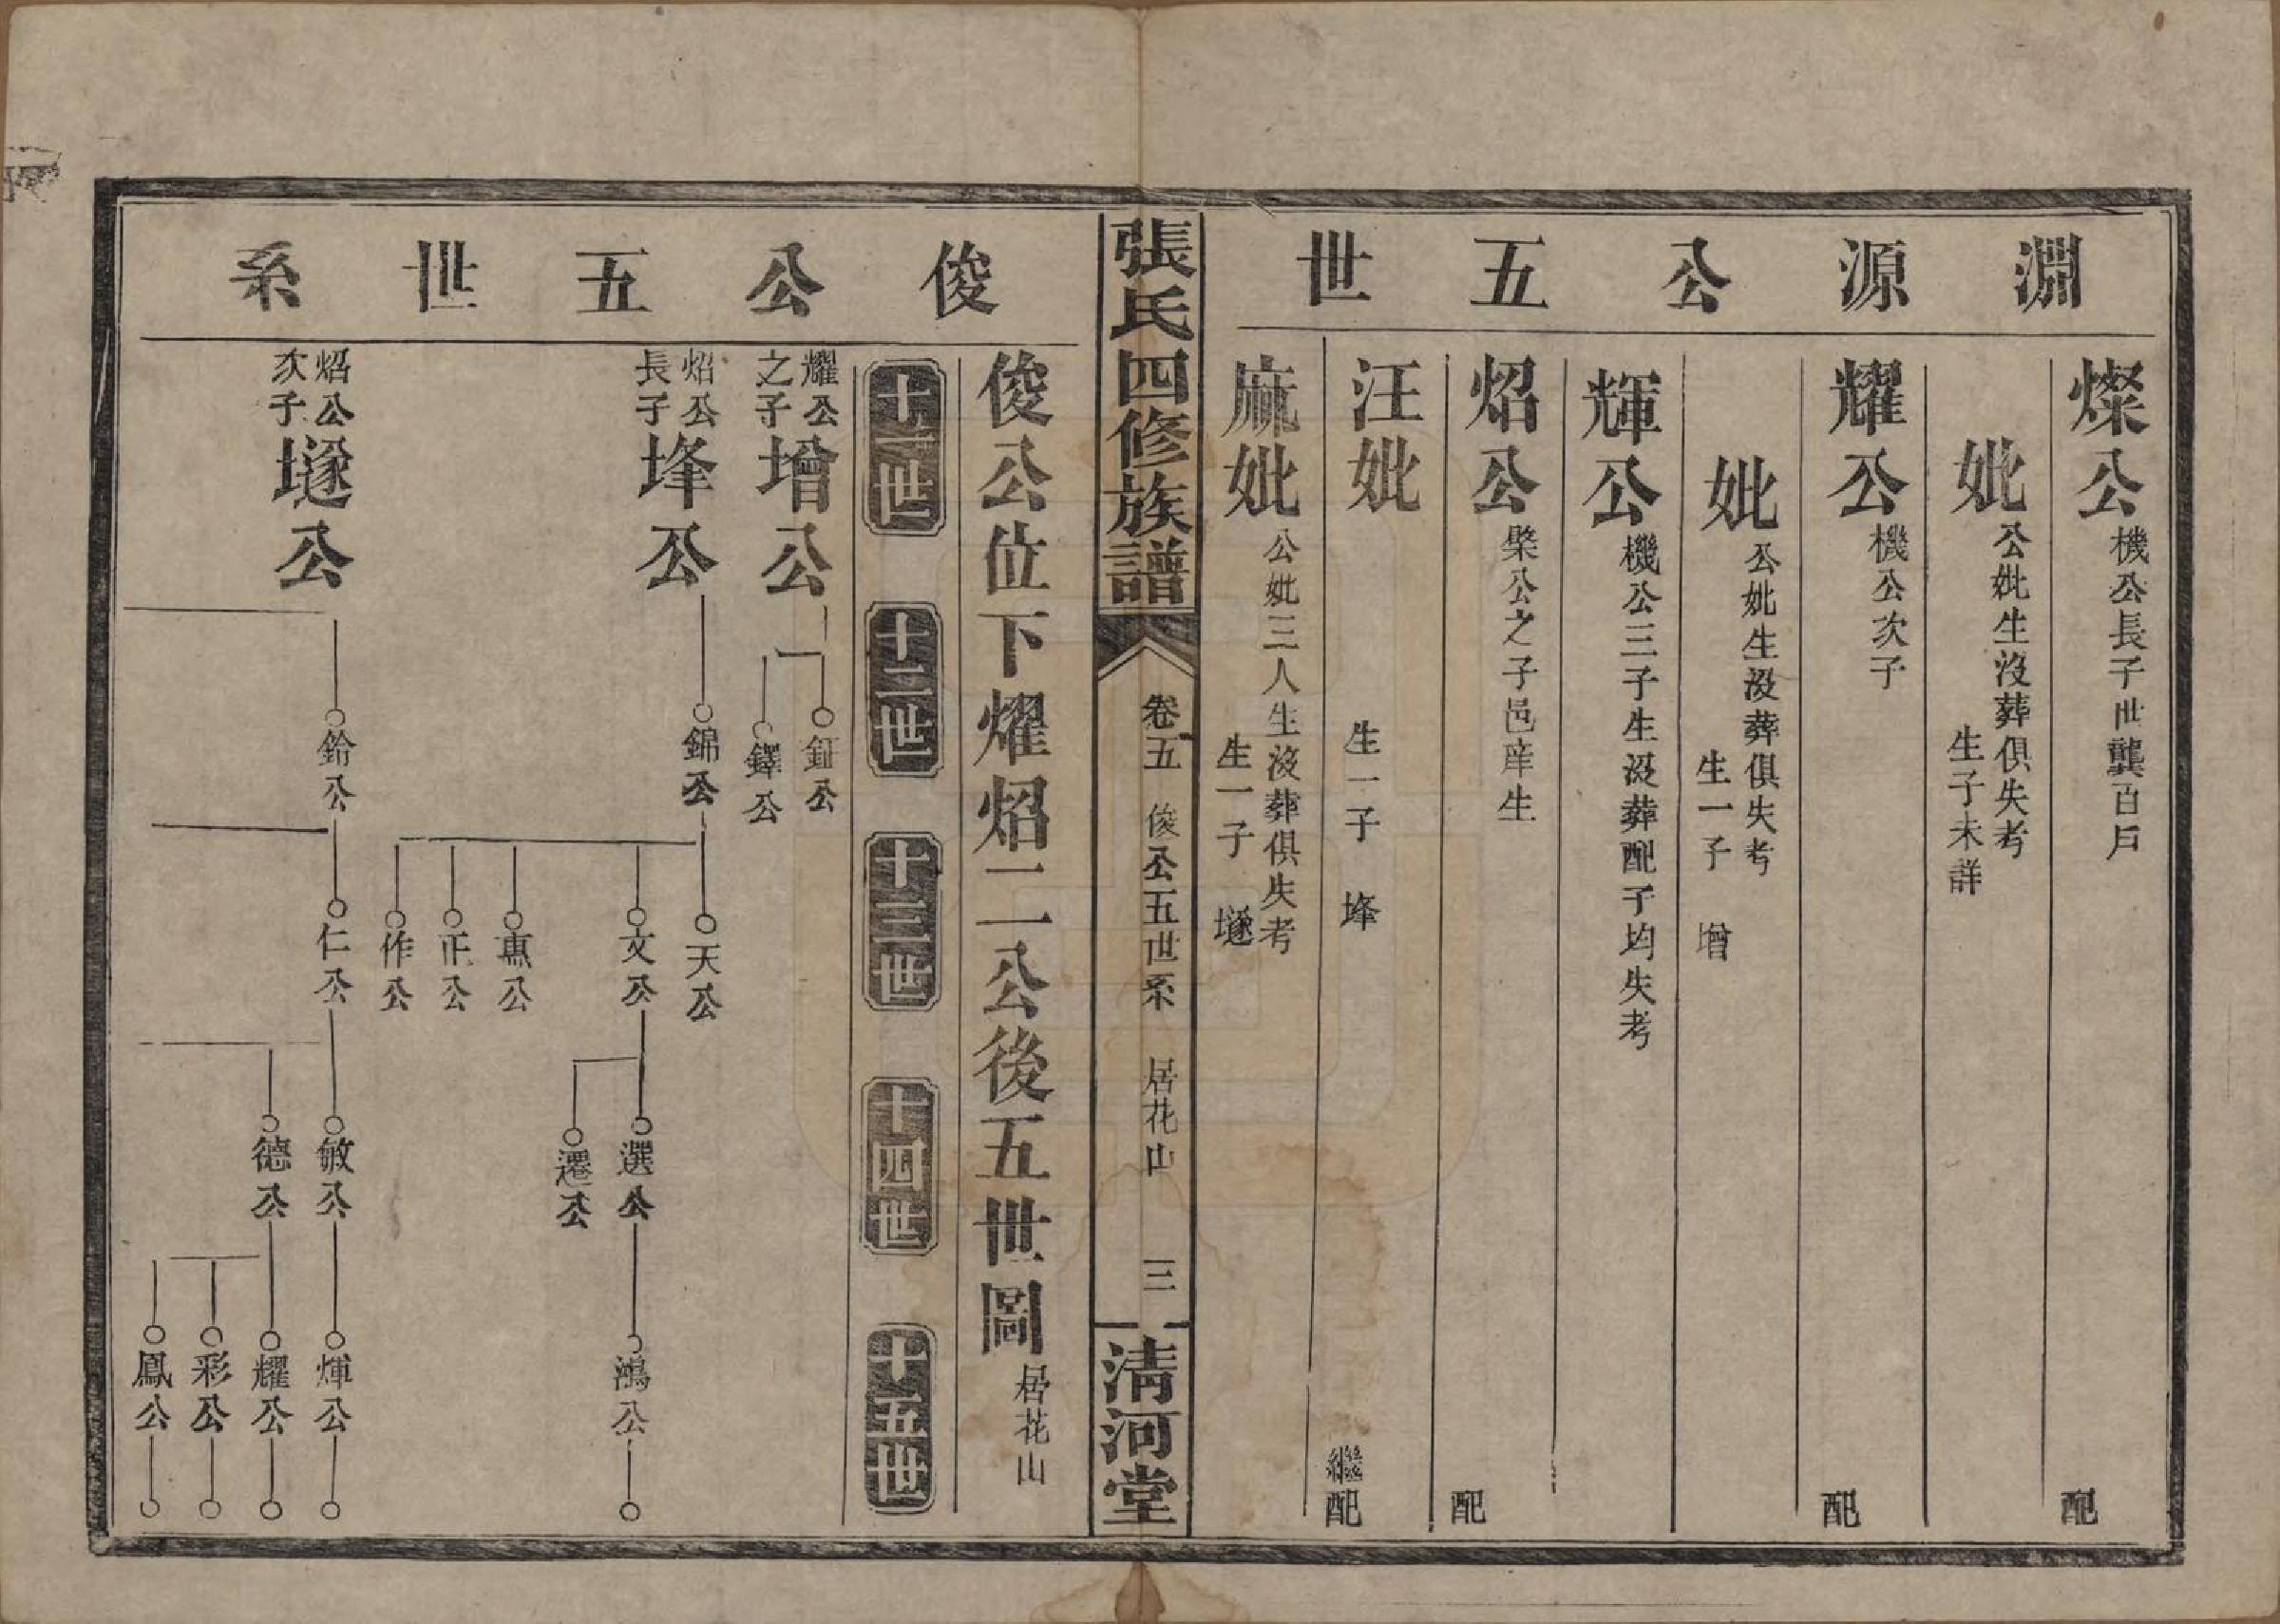 淵源公五世
燦公 機公長子世襲百戶 配
妣 公妣生沒葬俱失考 生子未詳
耀公 機公次子 配
妣 公妣生沒葬俱失考 生一子 增
輝公 機公三子生沒葬配子均失考
炤公 檠公之子邑庠生 配
汪妣 生一子 埄 繼配
麻妣 公妣三人生沒葬俱失考 生一子 墜
張氏四修族譜 卷五 俊公五世系 居花山 三 清河堂
俊公五世系
俊公位下燿炤二公後五世圖 居花山
十一世 十二世 十三世 十四世 十五世
耀公之子 增公
鉦公
鐸公
炤公長子 埄公
錦公
天公
文公
惠公
正公
作公
選公
遷公
鴻公
炤公次子
鈴公
仁公
敏公
德公
煇公
耀公
彩公
鳳公